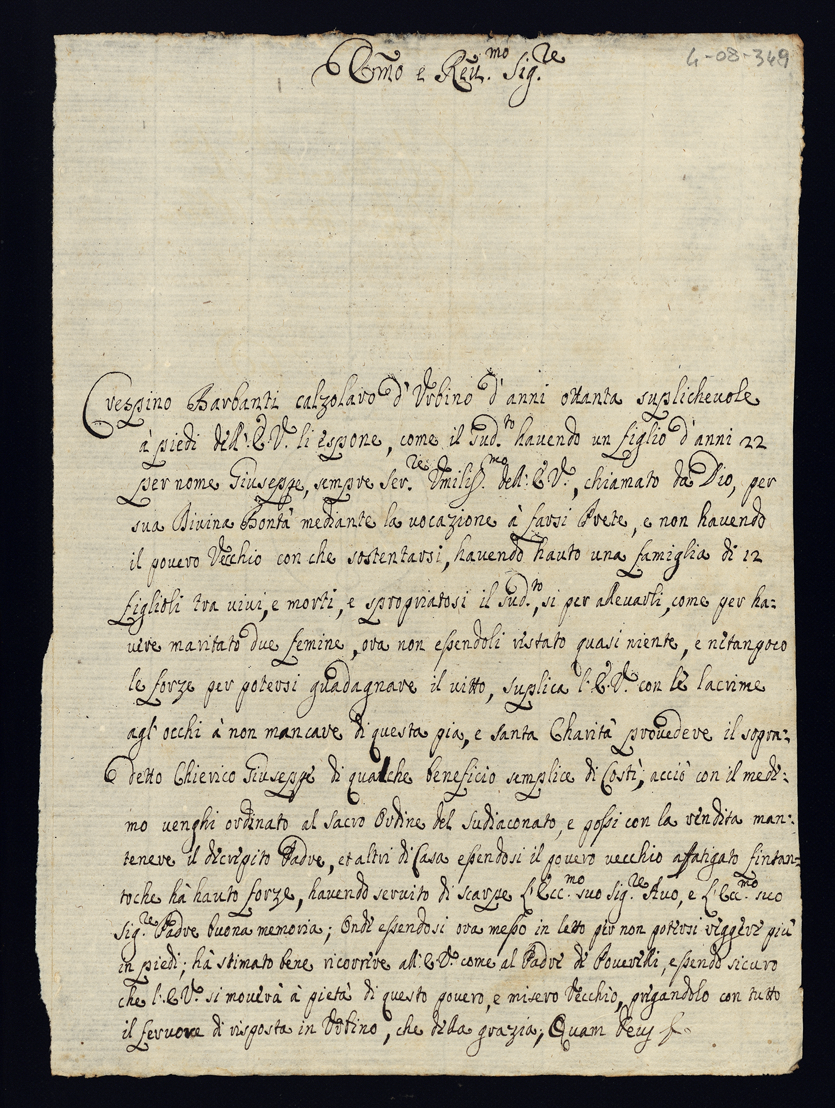 Em̃o e Reu.mo Sig.re
4-08-349
Crespino Barbanti calzolaro d'Vrbino d'anni ottanta suplicheuole
à piedi dell'E.V. li espone, come il Sud.to hauendo un figlio d'anni 22
per nome Giuseppe, sempre Ser.re Vmiliss.mo dell'E.V., chiamato da Dio, per
sua Diuina Bontà mediante la uocazione à farsi Prete, e non hauendo
il pouero Vecchio con che sostentarsi, hauendo hauto una famiglia di 12
figlioli tra uiui, e morti, e spropriatosi il Sud.to, si per alleuarli, come per ha-
uere maritato due femine, ora non essendoli ristato quasi niente, e nè tampoco
le forze per potersi guadagnare il uitto, suplica l'E.V. con le lacrime
agl'occhi à non mancare di questa pia, e santa Charità prouedere il sopra-
detto Chierico Giuseppe di qualche beneficio semplice di Costì, acciò con il mede-
mo uenghi ordinato al sacro Ordine del sudiaconato, e possi con la rendita man-
tenere il decrepito Padre, et altri di Casa essendosi il pouero uecchio affatigato fintan-
toche hà hauto forze, hauendo seruito di scarpe l'Ecc.mo suo Sig.re Auo, e l'Ecc.mo suo
Sig.re Padre buona memoria; Onde essendosi ora messo in letto per non potersi reggere più
in piedi; hà stimato bene ricorrere all'E.V. come al Padre di Pouerelli, essendo sicuro
che l'E.V. si mouerà à pietà di questo pouero, e misero Vecchio, pregandolo con tutto
il feruore di risposta in Vrbino, che della grazia; Quam Deus